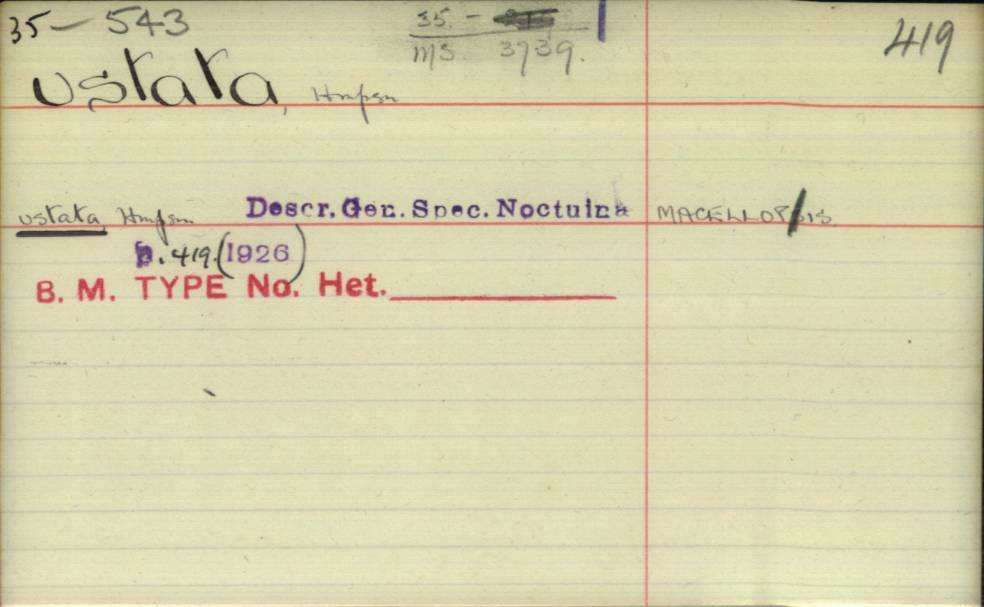 35 — 543
35. -
MS 3739.
419
ustata, Hmpsn
ustata, Hmpsn Descr. Gen. Spec. Noctuinæ MACELLOPSIS
p. 419. (1926)
B. M. TYPE No. Het.